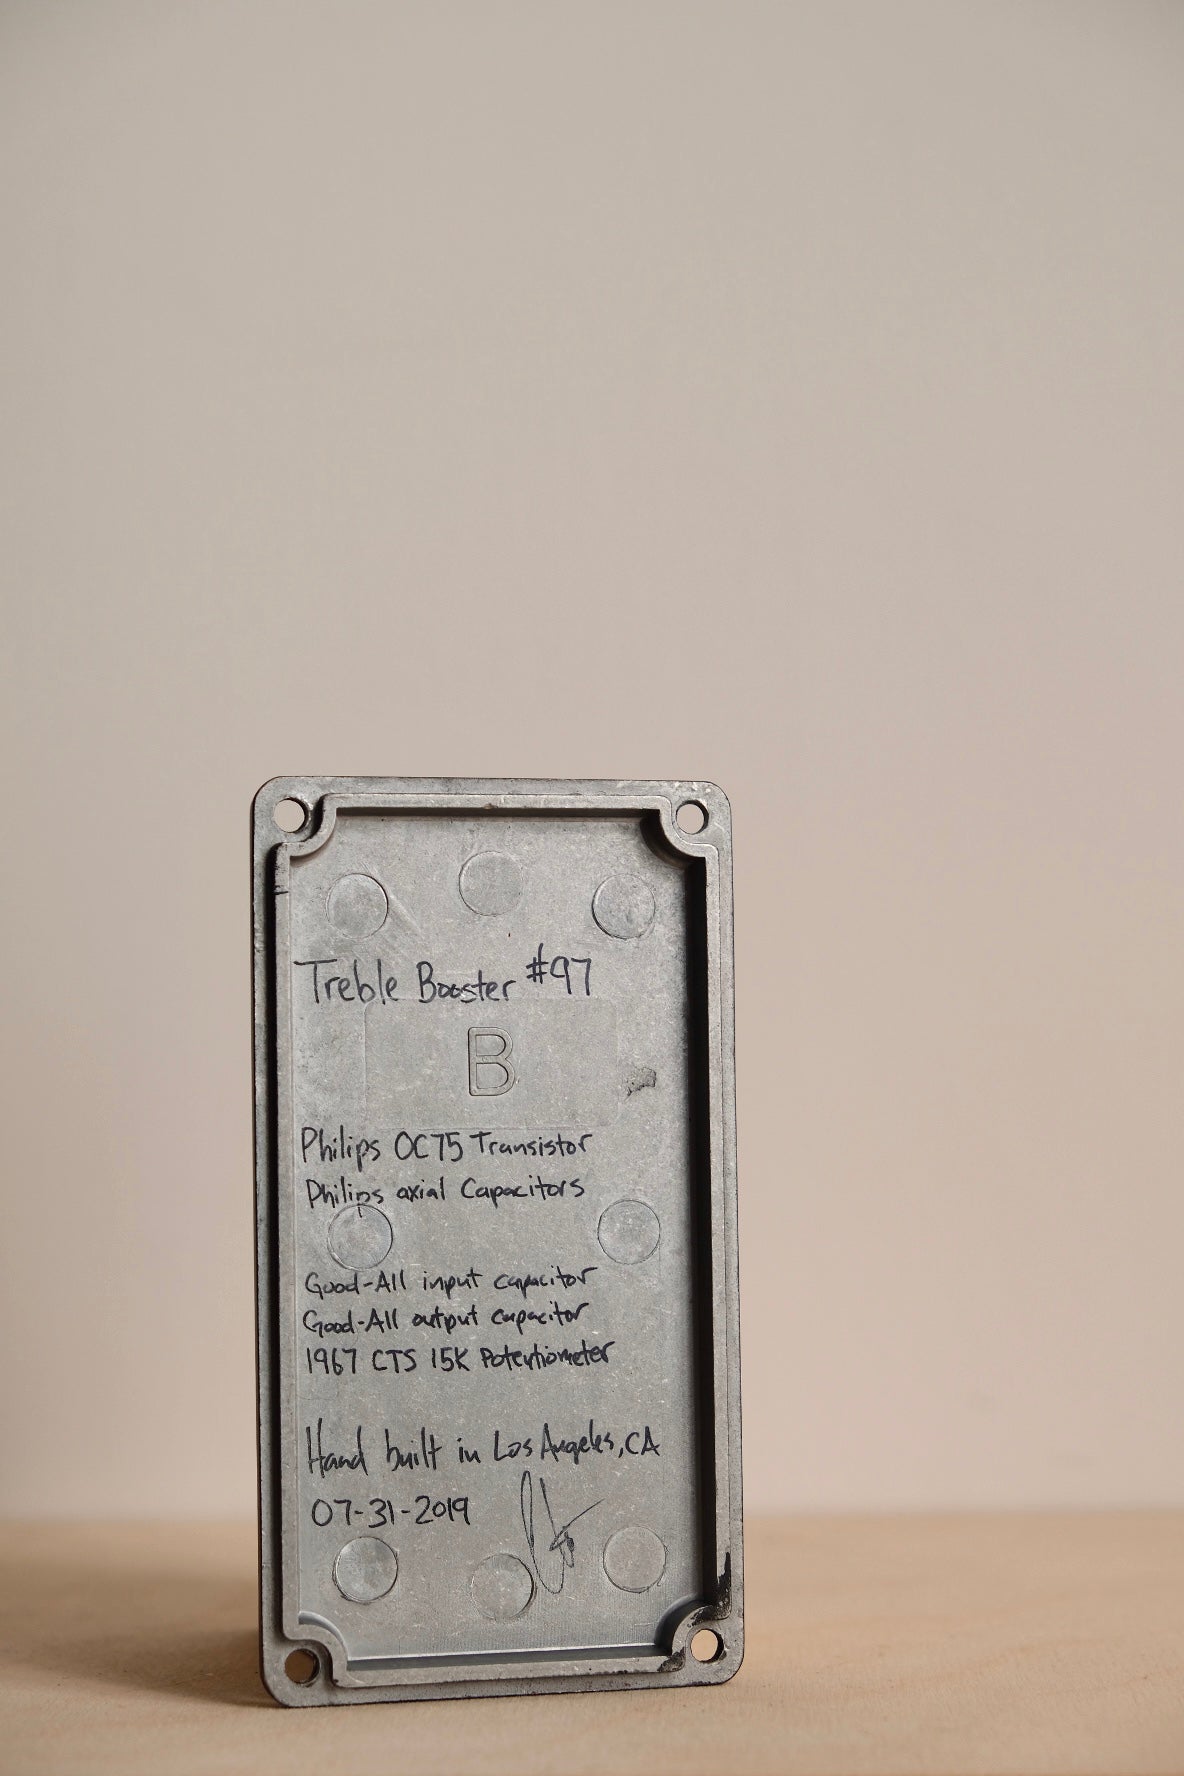 Treble Booster #97
B
Philips OC75 Transistor
Philips axial Capacitors
Good-All input capacitor
Good-All output capacitor
1967 CTS 15K Potentiometer
Hand built in Los Angeles, CA
07-31-2019